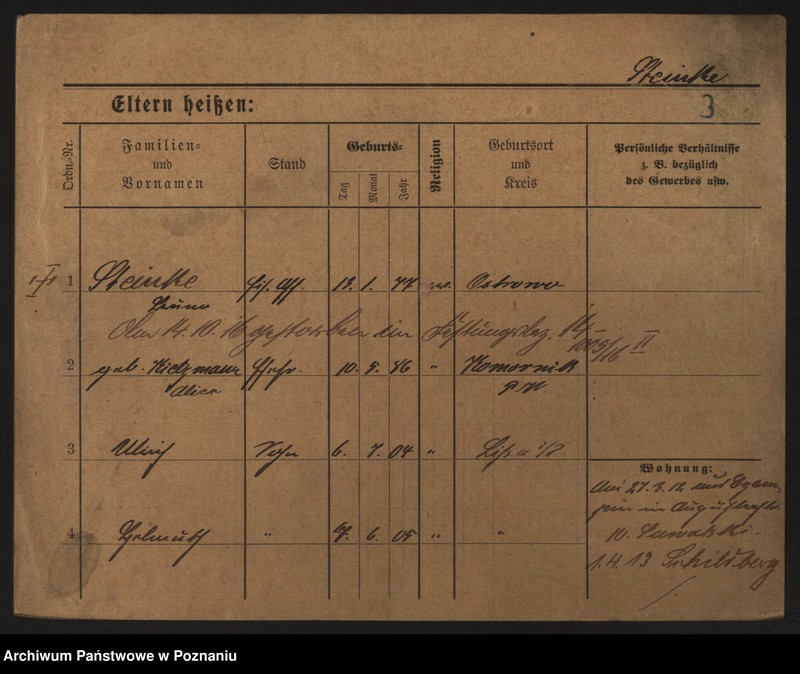 Steinke
3
Eltern heißen:
Ordn.-Nr.
Familien= und Vornamen
Stand
Geburts-
Tag
Monat
Jahr
Religion
Geburtsort und Kreis
Persönliche Verhältnisse
z. B. bezüglich
des Gewerbes usw.
1 Steinke 13. 1. 77 Ostrowo
Bruno
Am 14. 10. 16 gestorben
2 geb. Kietzmann Ehefr. 10. 5. 76 " Komornik
Alice
3 Ulrich Sohn 6. 7. 04 " Lissa i/P
Wohnung:
Am 27. 3. 12
4 Helmuth " 6. 05 " "
10. Suwalski.
1. 4. 13 Schildberg
Archiwum Państwowe w Poznaniu